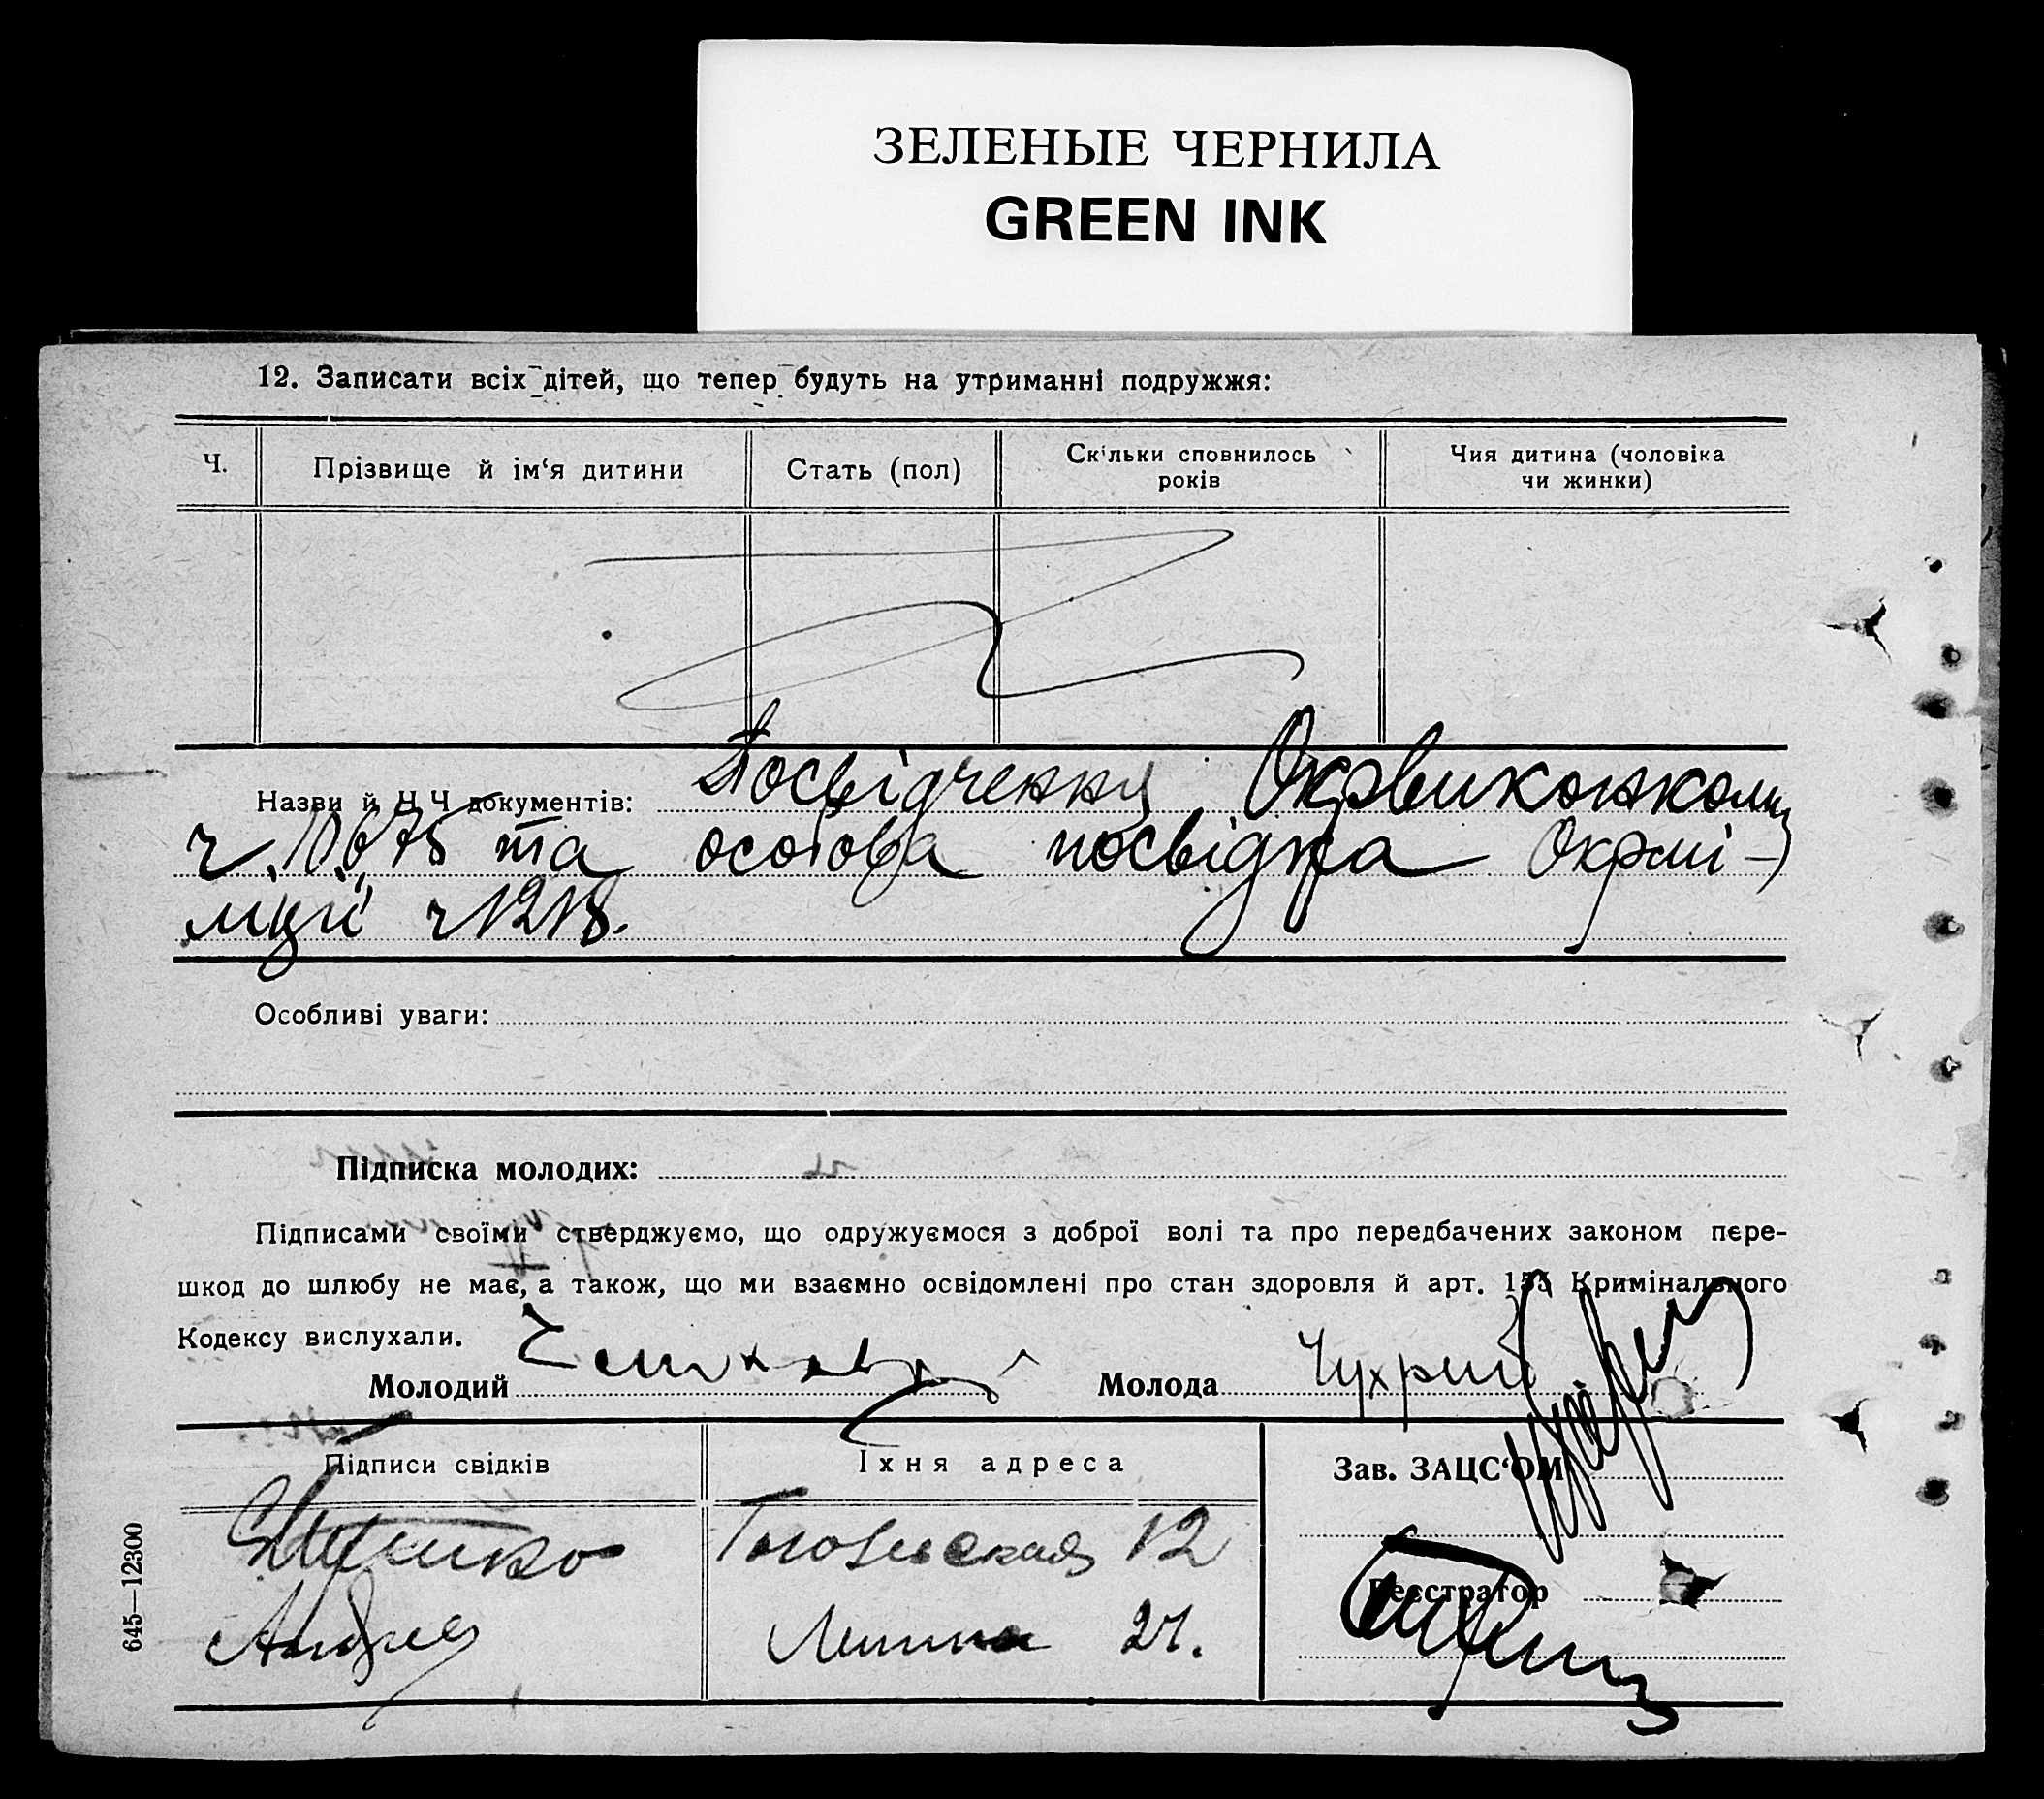 ЗЕЛЕНЫЕ ЧЕРНИЛА
GREEN INK
12. Записати всіх дітей, що тепер будуть на утриманні подружжя:
Ч.
Прізвище й ім‘я дитини
Стать (пол)
Скільки сповнилось
років
Чия дитина (чоловіка
чи жинки)
Назви й Ч Ч документів: Посвідчення Окрвиконкому
ч. 10675 та особова посвідка Окрмі-
ліції ч 1218.
Особливі уваги:
Підписка молодих:
Підписами своїми стверджуємо, що одружуємося з доброї волі та про передбачених законом пере-
шкод до шлюбу не має, а також, що ми взаємно освідомлені про стан здоровля й арт. 155 Кримінального
Кодексу вислухали.
Молодий
Молода Чухрий
Підписи свідків
Їхня адреса
Зав. ЗАЦС‘ОМ
Гоголевская 12
Реєстратор
Ленина 27.
645—12300